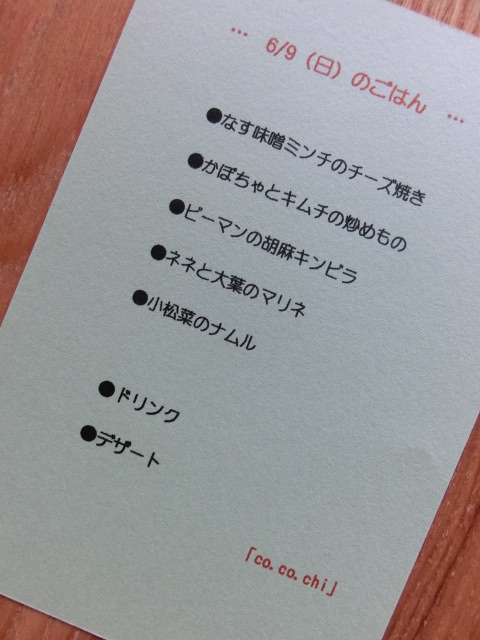 … 6/9（日）のごはん …
●なす味噌ミンチのチーズ焼き
●かぼちゃとキムチの炒めもの
●ピーマンの胡麻キンピラ
●ネネと大葉のマリネ
●小松菜のナムル
●ドリンク
●デザート
「co.co.chi」